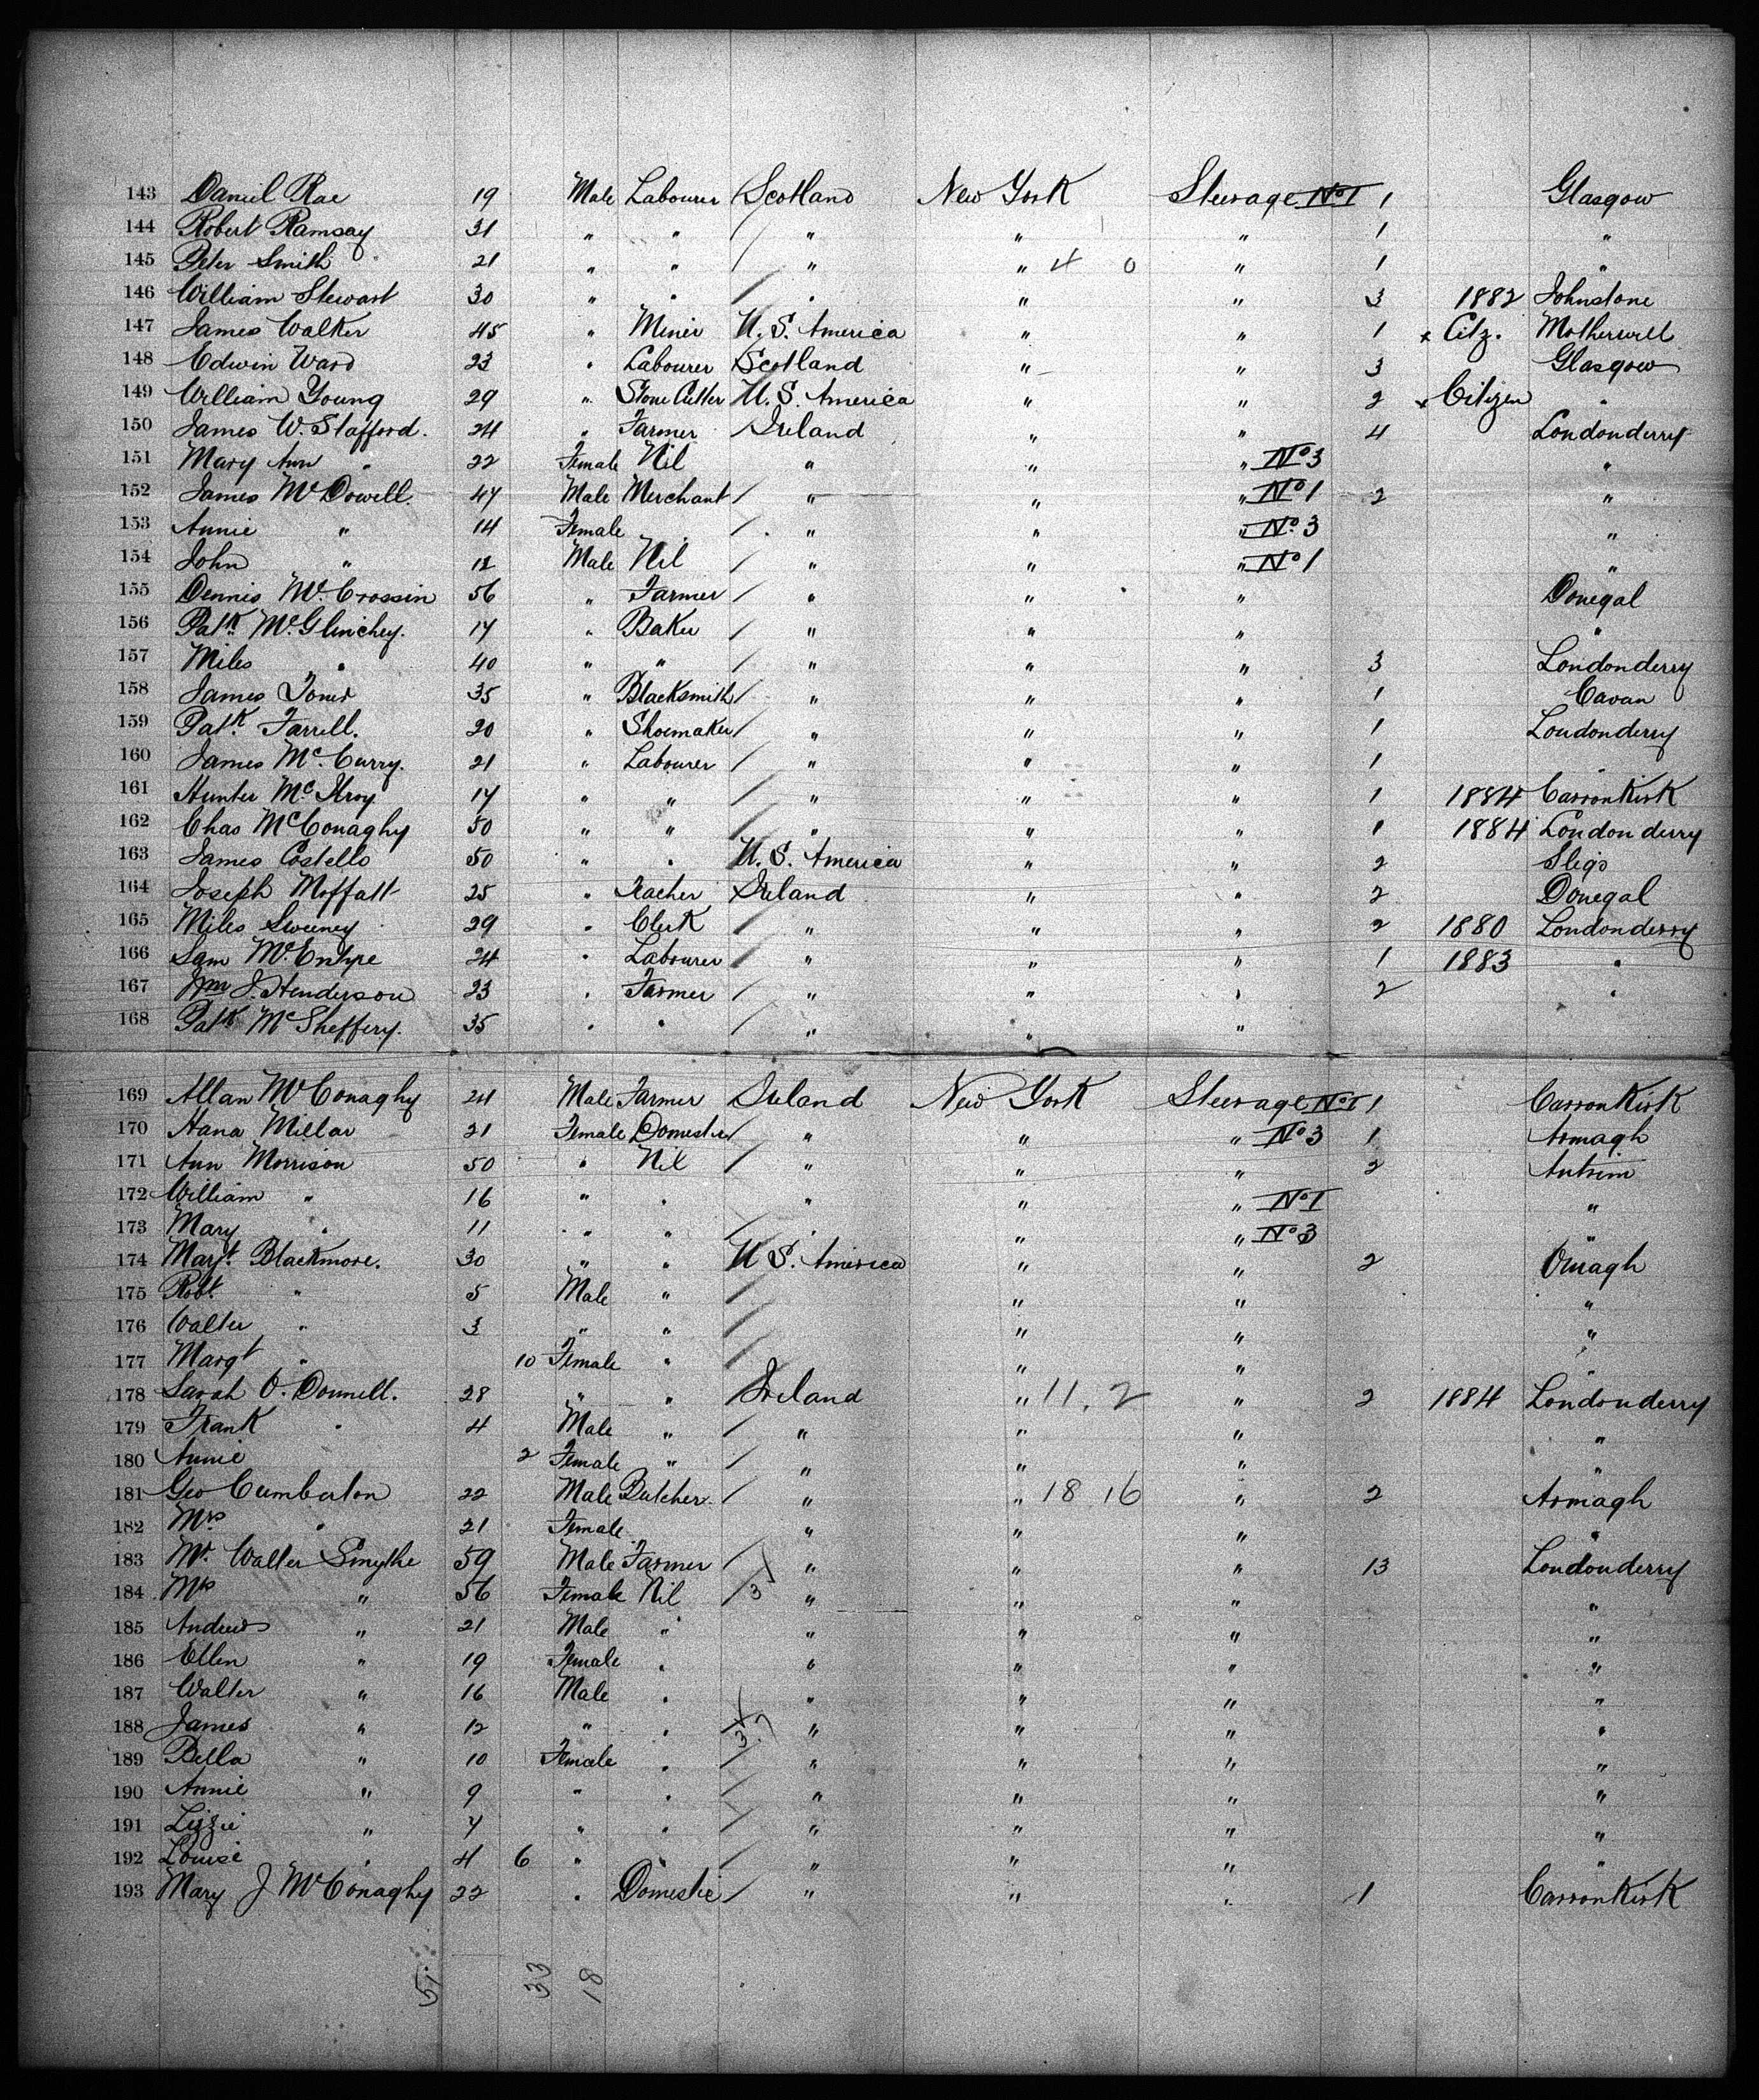 143 Daniel Rae 19 Male Labourer Scotland New York Steerage No 1 1 Glasgow
144 Robert Ramsay 31 " " / " " " 1 "
145 Peter Smith 21 " " / " " 4 0 " 1 "
146 William Stewart 30 " " / " " " 3 1882 Johnstone
147 James Walker 45 " Miner U.S. America " " 1 x Citz. Motherwell
148 Edwin Ward 23 " Labourer Scotland " " 3 Glasgow
149 William Young 29 " Stone Cutter U.S. America " " 2 x Citizen "
150 James W. Stafford. 24 " Farmer Ireland " " 4 Londonderry
151 Mary Ann " 22 Female Nil " " " No 3 "
152 James McDowell 47 Male Merchant / " " " No 1 2 "
153 Annie " 14 Female / " " " No. 3 "
154 John " 12 Male Nil / " " " No 1 "
155 Dennis Mc.Crossin 56 " Farmer / " " " Donegal
156 Patk. Mc.Glinchey. 17 " Baker / " " " "
157 Miles " 40 " " / " " " 3 Londonderry
158 James Toner 35 " Blacksmith / " " " 1 Cavan
159 Patk. Farrell. 20 " Shoemaker / " " " 1 Londonderry
160 James Mc.Curry. 21 " Labourer / " " " 1 "
161 Hunter McIlroy 17 " " / " " " 1 1884 CarronKirk
162 Chas McConaghy 50 " " / " " " 1 1884 Londonderry
163 James Costello 50 " " U.S. America " " 2 Sligo
164 Joseph Moffatt 25 " Teacher Ireland " " 2 Donegal
165 Miles Sweeney 29 " Clerk / " " " 2 1880 Londonderry
166 Sam Mc.Entyre 24 " Labourer / " " " 1 1883 "
167 Wm J. Henderson 23 " Farmer / " " " 2 "
168 Patk McSheffery. 35 " " / " " "
169 Allan McConaghy 24 Male Farmer Ireland New York Steerage No 1 1 CarronKirk
170 Hana Millar 21 Female Domestic / " " " No 3 1 Armagh
171 Ann Morrison 50 " Nil / " " " 2 Antrim
172 William " 16 " " " " " No 1 "
173 Mary " 11 " " / " " " No 3 "
174 Margt. Blackmore. 30 " " U S. America " " 2 Omagh
175 Robt. " 5 Male " / " " "
176 Walter " 3 " " / " " "
177 Margt " 10 Female " / " " "
178 Sarah O.Donnell. 28 " " Ireland " 11. 2 " 2 1884 Londonderry
179 Frank " 4 Male " / " " " "
180 Annie 2 Female " / " " " "
181 Geo Cumberton 22 Male Butcher. / " " 18 16 " 2 Armagh
182 Mrs " 21 Female " " " "
183 Mr. Walter Smythe 59 Male Farmer / " " " 13 Londonderry
184 Mrs " 56 Female Nil / 3 " " " "
185 Andrew " 21 Male " " " " "
186 Ellen " 19 Female " " " " "
187 Walter " 16 Male " " " " "
188 James " 12 " " " " " "
189 Bella " 10 Female " / " " " "
190 Annie " 9 " " / " " " "
191 Lizzie " 7 " " / " " " "
192 Louise " 4 6 " " / " " " "
193 Mary J McConaghy 22 " Domestic / " " " 1 CarronKirk
51 33 18